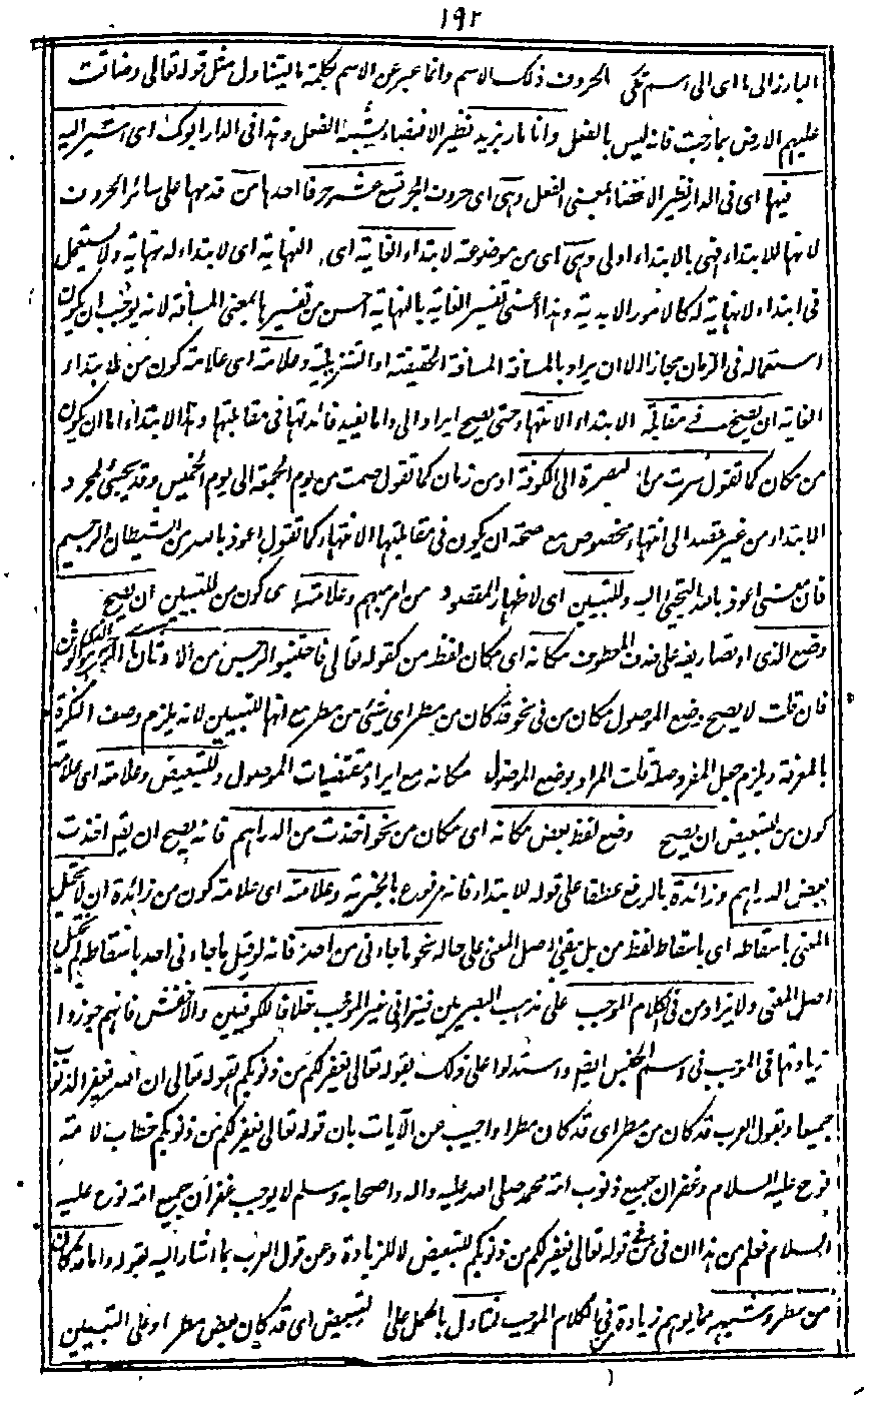 ١٩٢
البارز الى ما اى الى اسم تلى الحروف ذلك الاسم وانما عبر عن الاسم بكلمة ما ليتناول مثل قوله تعالى وضاقت
عليهم الارض بما رحبت فانه ليس بالفعل وانا مار بزيد نظير الافضاء بشبه الفعل وهذا فى الدار ابوك اى اشير اليه
فيها اى فى الدار نظير الافضاء بمعنى الفعل وهى اى حروف الجر تسع عشر حرفا احدها من قدمها على سائر الحروف
لانها للابتداء فهى بالابتداء اولى وهى اى من موضوعة لابتداء الغاية اى النهاية اى لابتداء له نهاية ولا يستعمل
فى ابتداء لا نهاية له كالامور الابدية وهذا اعنى تفسير الغاية بالنهاية احسن من تفسيرها بمعنى المسافة لانه يوجب ان يكون
استعماله فى الزمان مجازا الا ان يراد بالمسافة المسافة الحقيقة او التنزيلية وعلامته اى علامة كون من للابتداء
الغاية ان يصح فى مقابلة الابتداء الانتهاء حتى يصح ايراد الى واما يفيد فائدتها فى مقابلتها وهذا الابتداء اما ان يكون
من مكان كما تقول سرت من البصرة الى الكوفة او من زمان كما تقول صمت من يوم الجمعة الى يوم الخميس وقد يجيئ لمجرد
الابتداء من غير قصد الى انتهاء مخصوص مع صحة ان يكون فى مقابلتها الانتهاء كما تقول اعوذ بالله من الشيطان الرجيم
فان معنى اعوذ بالله التجئ اليه وللتبيين اى لاظهار المقصود من امر مبهم وعلامته اى كون من للتبيين ان يصح
وضع الذى او تصاريفه على حذف المعطوف مكانه اى مكان لفظ من كقوله تعالى فاجتنبوا الرجس من الاوثان اى الرجس الذى هو الوثن
فان قلت لا يصح وضع الموصول مكان من فى نحو قد كان من مطر اى شيئ من مطر مع انها للتبيين لانه يلزم وصف النكرة
بالمعرفة ويلزم جعل المفرد صلة قلت المراد بوضع الموصول مكانه مع ايراد مقتضيات الموصول وللتبعيض وعلامته اى علامة
كون من للتبعيض ان يصح وضع لفظ بعض مكانه اى مكان من نحو اخذت من الدراهم فانه يصح ان يقر اخذت
بعض الدراهم وزائدة بالرفع عطفا على قوله لابتداء فانه مرفوع بالخبرية وعلامته اى علامة كون من زائدة ان لا يختل
المعنى باسقاطه اى باسقاط لفظ من بل يبقى اصل المعنى على حاله نحو ما جاءنى من احد فانه لو قيل ما جاءنى احد باسقاطه لم يختل
اصل المعنى ولا يزاد من فى الكلام الموجب على مذهب البصريين فيزاد فى غير الموجب خلافا للكوفيين والاخفش فانهم جوزوا
زيادتها فى الموجب فى اسم الجنس ايضا واستدلوا على ذلك بقوله تعالى يغفر لكم من ذنوبكم لقوله تعالى ان الله يغفر الذنوب
جميعا وبقول العرب قد كان من مطر اى قد كان مطر واجيب عن الآيات بان قوله تعالى يغفر لكم من ذنوبكم خطاب لامة
نوح عليه السلام وغفران جميع ذنوب امة محمد صلى الله عليه واله واصحابه وسلم لا يوجب غفران جميع امة نوح عليه
السلام فعلم من هذا ان من فى نحو قوله تعالى يغفر لكم من ذنوبكم للتبعيض لا للزيادة وعن قول العرب بما اشار اليه بقوله واما قد كان
من مطر وشبهه مما يوهم زيادة من فى الكلام الموجب فمتاول بالحمل على التبعيض اى قد كان بعض مطر او على التبيين